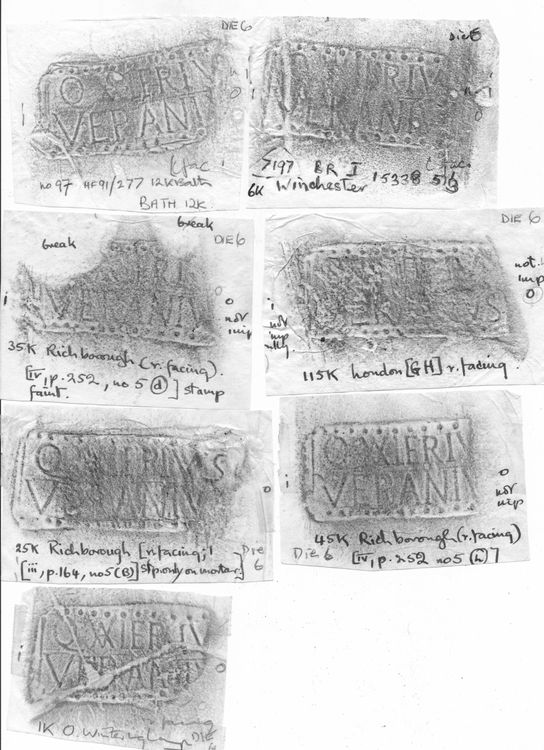 DIE 6
Q VALERIV
VERANI
no 97 HF91/277 12K Bath
BATH 12K
Die 6
ERIV
VERANI
S197 BR I 15338 5/6
6K Winchester
break
break
DIE 6
ERI
VERANIV
o
not
imp
35K Richborough (r. facing).
[iv, p. 252, no 5 (d)] stamp
faint.
DIE 6
VS
not
imp
o
not
imp
115K London [GH] r. facing.
Q VALERIVS
VERANIV
o
25K Richborough [r. facing; 1
[iii, p. 164, no 5 (B)] stp. only on mortar]
Die
6
Q VALERIV
VERANIV
o
not
imp
45K Richborough (r. facing)
Die 6
[iv, p. 252 no 5 (h)]
Q VALERIV
VERANI
facing
1K O. Winteringham
DIE